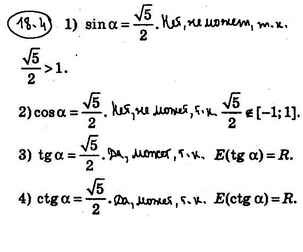 18.4 1) sin α = √5/2. Нет, не может, т.к.
√5/2 > 1.
2) cos α = √5/2. Нет, не может, т.к. √5/2 ∉ [–1; 1].
3) tg α = √5/2. Да, может, т.к. E(tg α) = R.
4) ctg α = √5/2. Да, может, т.к. E(ctg α) = R.